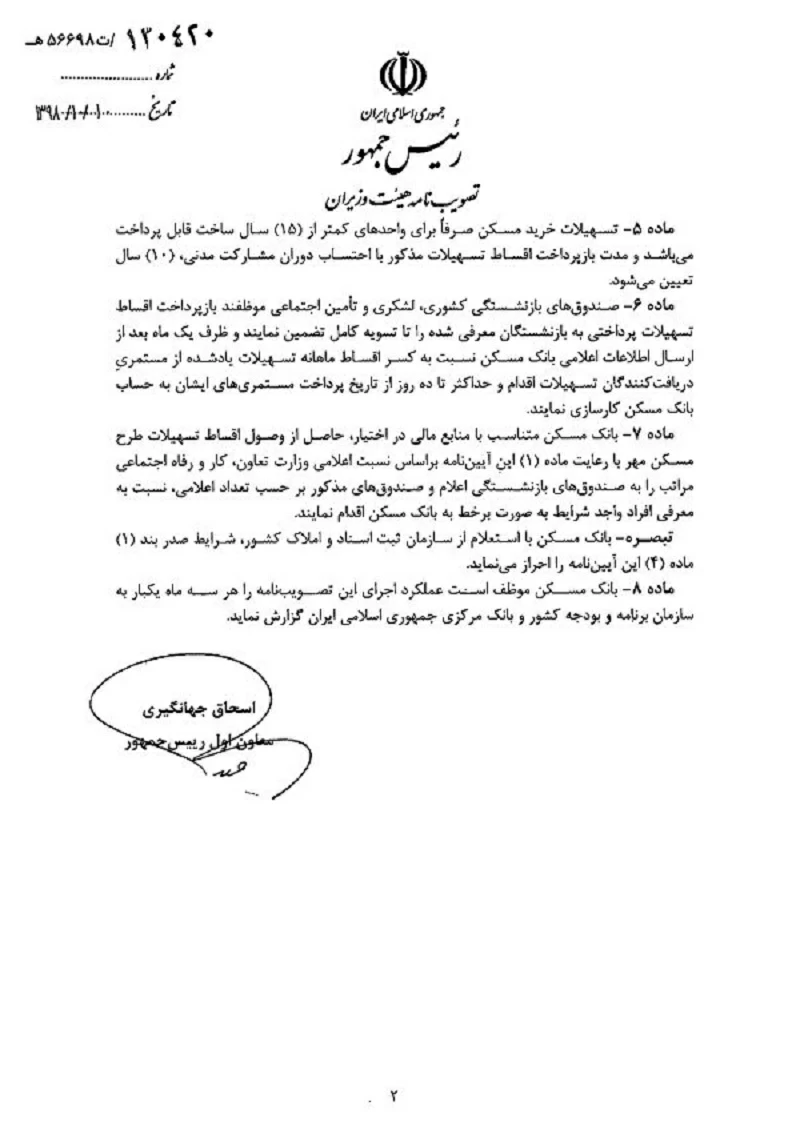 ۱۳۰۴۲۰ /ت۵۶۶۹۸هـ
شماره
تاریخ
جمهوری اسلامی ایران
رئیس جمهور
تصویب نامه هیئت وزیران
ماده ۵- تسهیلات خرید مسکن صرفاً برای واحدهای کمتر از (۱۵) سال ساخت قابل پرداخت
می‌باشد و مدت بازپرداخت اقساط تسهیلات مذکور با احتساب دوران مشارکت مدنی، (۱۰) سال
تعیین می‌شود.
ماده ۶- صندوق‌های بازنشستگی کشوری، لشکری و تأمین اجتماعی موظفند بازپرداخت اقساط
تسهیلات پرداختی به بازنشستگان معرفی شده را تا تسویه کامل تضمین نمایند و ظرف یک ماه بعد از
ارسال اطلاعات اعلامی بانک مسکن نسبت به کسر اقساط ماهانه تسهیلات یادشده از مستمری
دریافت‌کنندگان تسهیلات اقدام و حداکثر تا ده روز از تاریخ پرداخت مستمری‌های ایشان به حساب
بانک مسکن کارسازی نمایند.
ماده ۷- بانک مسکن متناسب با منابع مالی در اختیار، حاصل از وصول اقساط تسهیلات طرح
مسکن مهر با رعایت ماده (۱) این آیین‌نامه براساس نسبت اعلامی وزارت تعاون، کار و رفاه اجتماعی
مراتب را به صندوق‌های بازنشستگی اعلام و صندوق‌های مذکور بر حسب تعداد اعلامی، نسبت به
معرفی افراد واجد شرایط به صورت برخط به بانک مسکن اقدام نمایند.
تبصره- بانک مسکن با استعلام از سازمان ثبت اسناد و املاک کشور، شرایط صدر بند (۱)
ماده (۴) این آیین‌نامه را احراز می‌نماید.
ماده ۸- بانک مسکن موظف است عملکرد اجرای این تصویب‌نامه را هر سه ماه یکبار به
سازمان برنامه و بودجه کشور و بانک مرکزی جمهوری اسلامی ایران گزارش نماید.
اسحاق جهانگیری
معاون اول رییس‌جمهور
۲